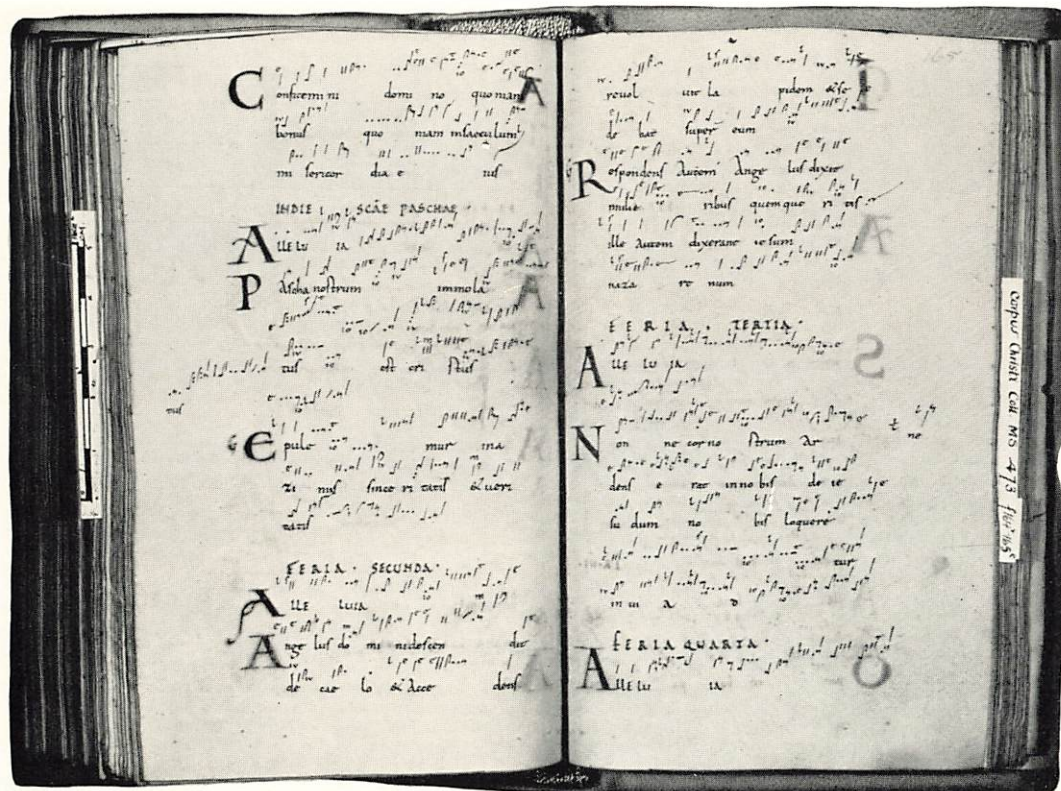 Confitemini domi no quoniam
bonus quo niam insaeculum
mi sericor dia e ius
INDIE SCĀE PASCHAE
ALLELU IA
PAscha nostrum immola
tus est xpi stus
tus
G Epule mur ina
zi mis since ri tatis & veri
tatis
FERIA · SECUNDA ·
ALLE LUIA
ANge lus do mi nidescen dit
de cae lo & Acce dens
165
revol vit la pidem & se
de bat super eum
G Respondens Autem Ange lus dixit
mulie ribus quemque ri tis
ille Autem dixerunt iesum
naza re num
FERIA · TERTIA ·
ALLE LU IA
Non ne cor no strum Ar ne
dens e rat inno bis de ie
su dum no bis loquere
tur
in vi a
FERIA QUARTA ·
ALLELU IA
Corpus Christi Coll MS 473